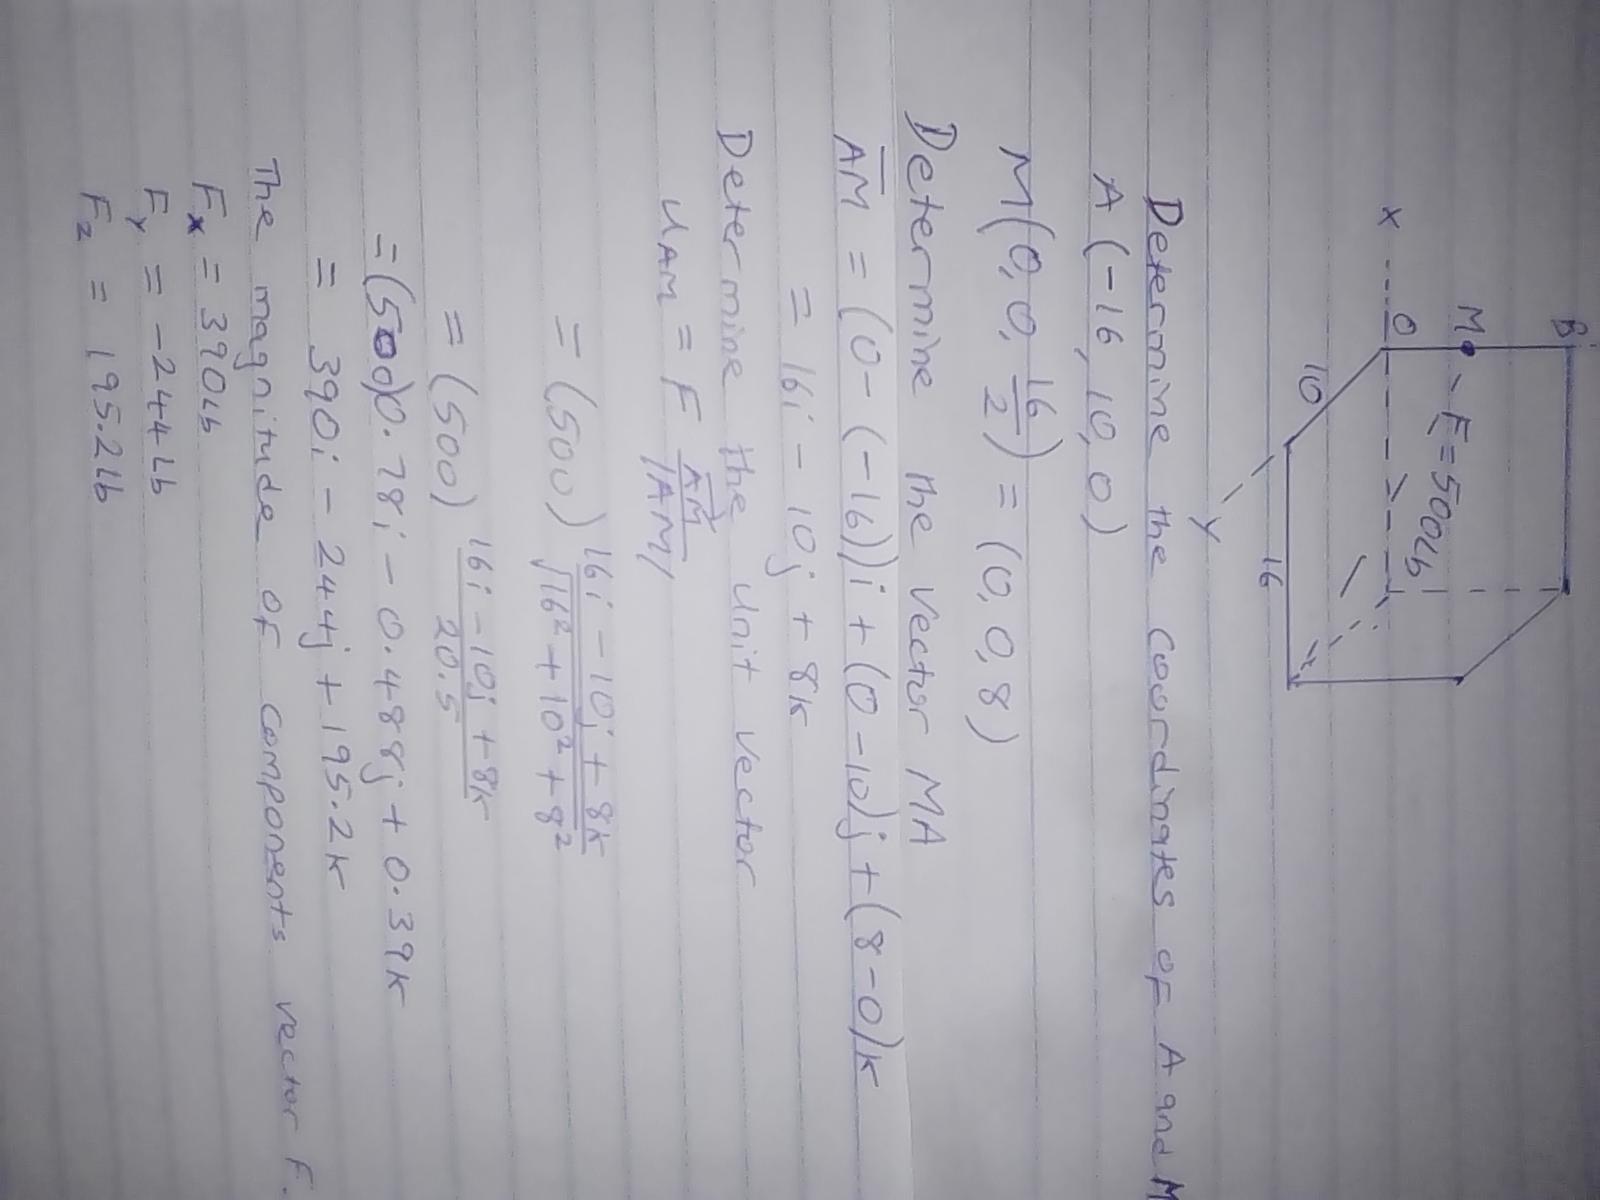 B
M
F=500lb
X
O
10
16
Y
Determine the coordinates of A and M
A(-16, 10, 0)
M(0, 0, 16/2) = (0, 0, 8)
Determine the vector MA
AM = (0-(-16))i + (0-10)j + (8-0)k
= 16i - 10j + 8k
Determine the unit vector
uAM = F AM/|AM|
= (500) 16i - 10j + 8k / √16² + 10² + 8²
= (500) 16i - 10j + 8k / 20.5
= (500)0.78i - 0.488j + 0.39k
= 390i - 244j + 195.2k
The magnitude of components vector F.
Fx = 390lb
Fy = -244lb
Fz = 195.2lb